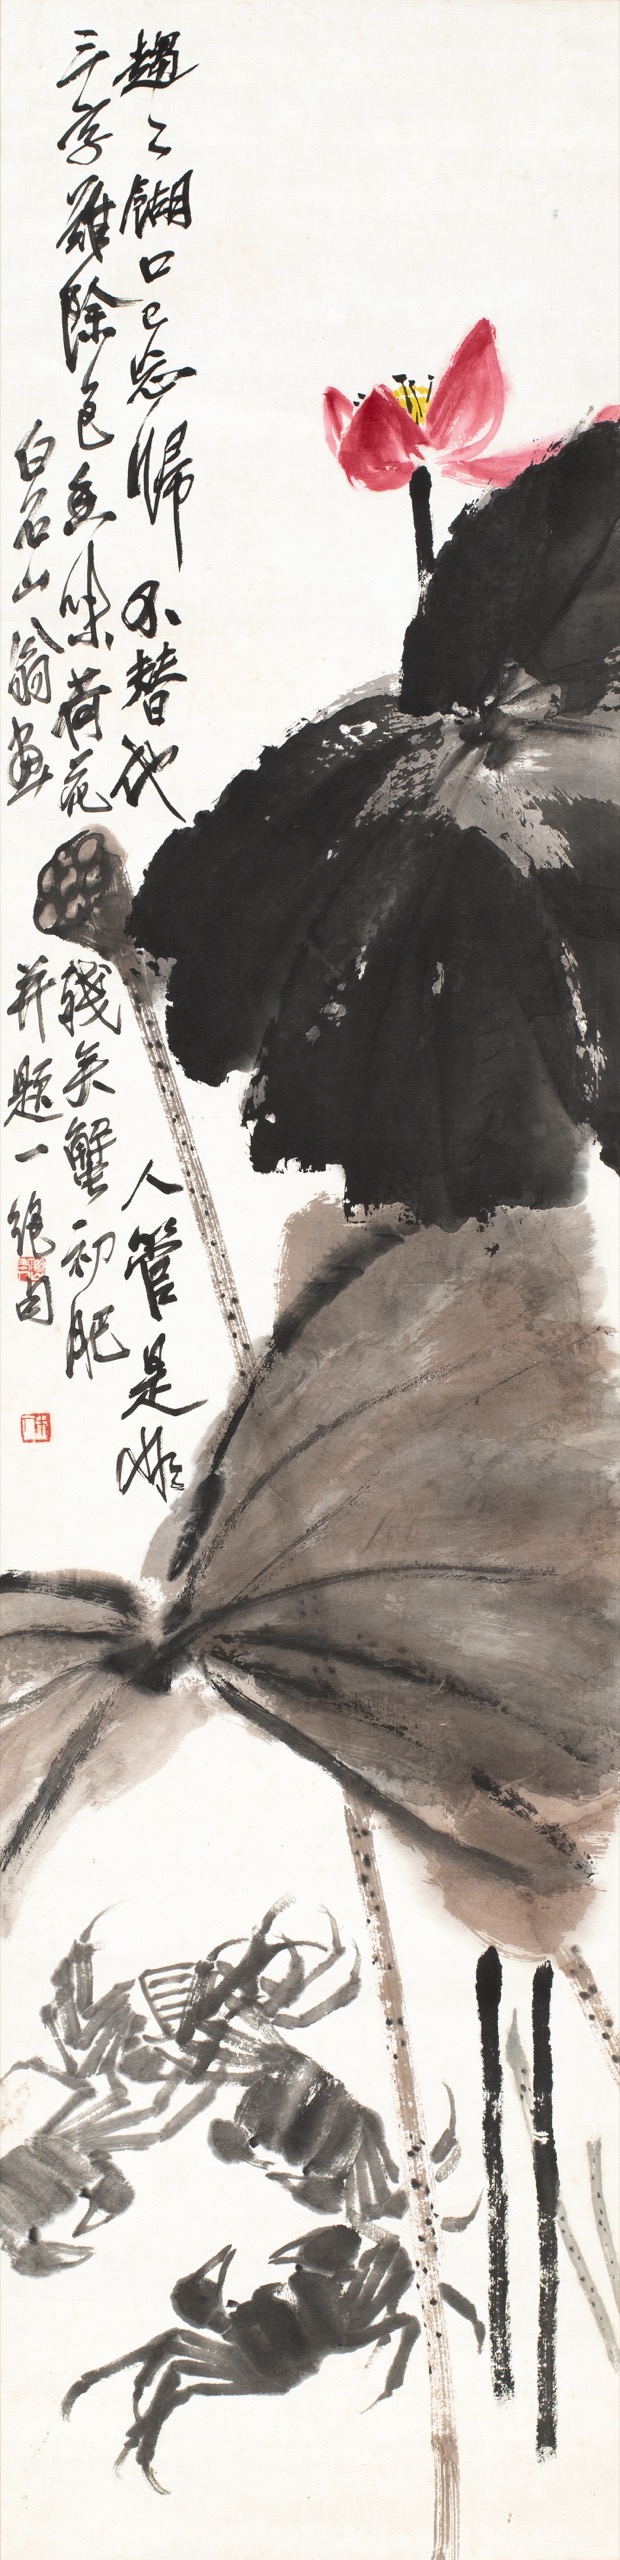 趨〻餬口已忘歸不替他人管是非
三字難除色香味荷花殘矣蟹初肥
白石山翁畫并題一絕句
木人